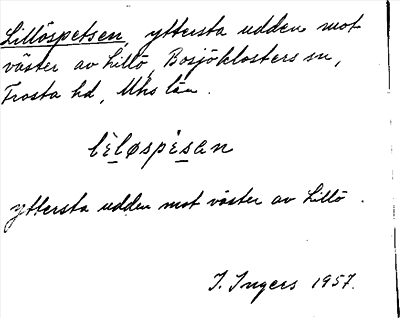 Lillöspetsen, yttersta udden mot
väster av Lillö, Bosjöklosters sn,
Frosta hd, Mhs län.
lìløspèsan
yttersta udden mot väster av Lillö.
I. Ingers 1957.